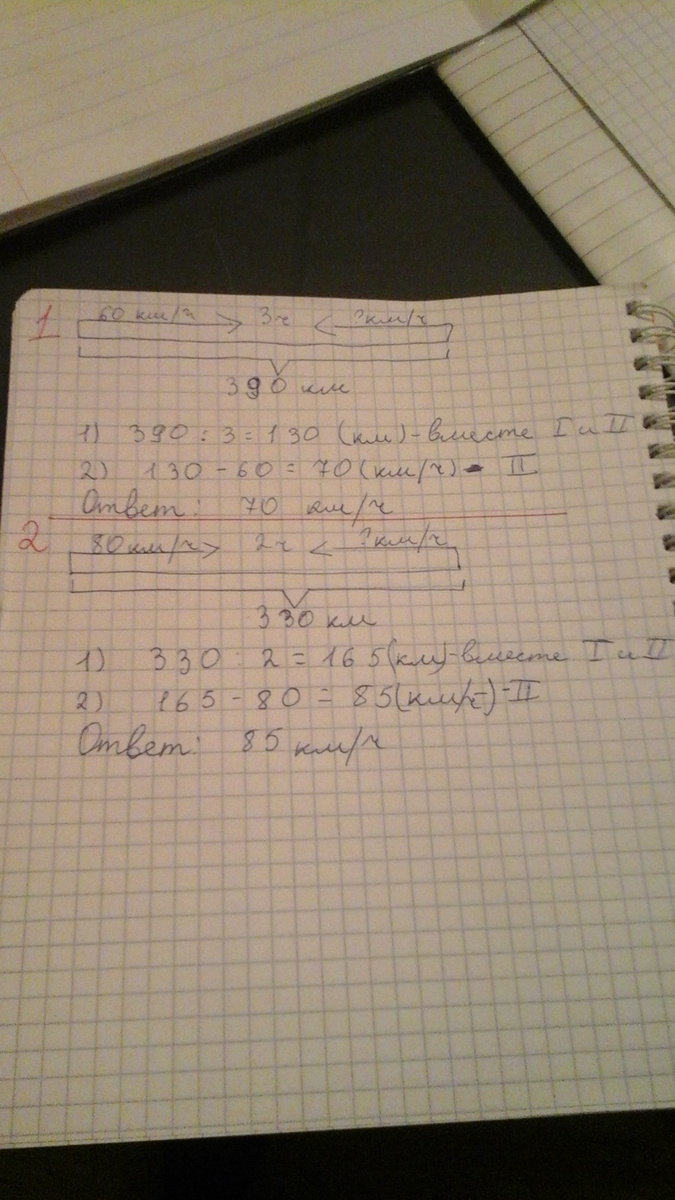 1 60 км/ч 3ч ?км/ч
390 км
1) 390 : 3 = 130 (км) - вместе I и II
2) 130 - 60 = 70 (км/ч) - II
Ответ: 70 км/ч
2 80 км/ч 2ч ?км/ч
330 км
1) 330 : 2 = 165 (км) - вместе I и II
2) 165 - 80 = 85 (км/ч) - II
Ответ: 85 км/ч